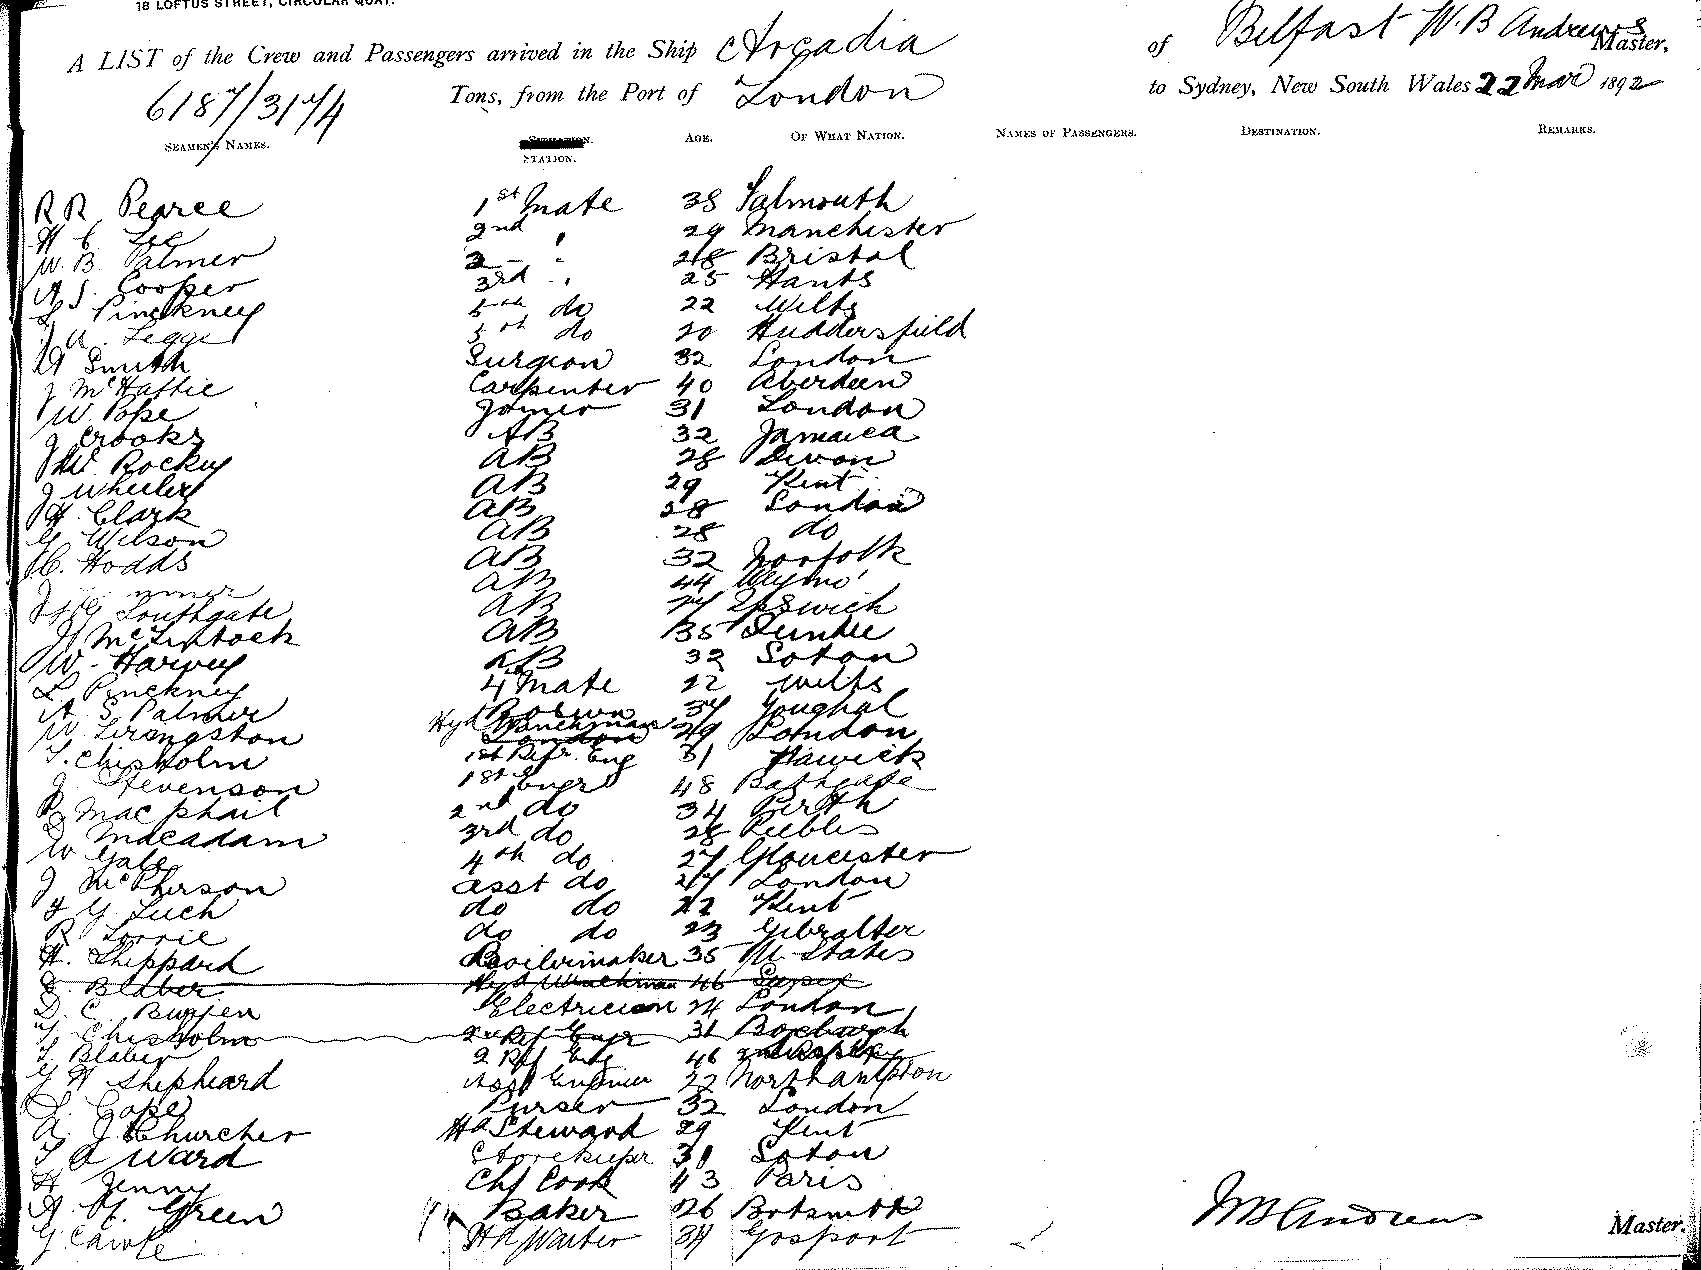 18 LOFTUS STREET, CIRCULAR QUAY.
A LIST of the Crew and Passengers arrived in the Ship Arcadia of Belfast W. B Andrews Master,
6187/3174 Tons, from the Port of London to Sydney, New South Wales 22 Mar 1892
SEAMEN'S NAMES. STATION. AGE. OF WHAT NATION. NAMES OF PASSENGERS. DESTINATION. REMARKS.
R R Pearce 1st Mate 38 Falmouth
Lee 2nd " 29 Manchester
W. B. Palmer 2 - " 28 Bristol
Cooper 3rd " 25 Hants
L Pinckney 5th do 22 Wilts
Legge 5th do 20 Huddersfield
Smith Surgeon 32 London
J McHattie Carpenter 40 Aberdeen
W. Pope Joiner 31 London
J Crooks AB 32 Jamaica
AB 28 Devon
J Wheeler AB 29 Kent
H. Clark AB 28 London
G Wilson AB 28 do
C. Hodds AB 32 Norfolk
AB 44 Weymo'
Southgate AB Ipswich
McLintock AB 35 Dundee
W. Harvey AB 32 Soton
L Pinckney 4 Mate 22 Wilts
A S Palmer Bosswn 37 Youghal
W Livingston 29 London
T. Chisholm 1st Refr. Eng 31 Hawick
J Stevenson 1st Engr 48 Bathgate
R Macphail 2nd do 34 Perth
D Macadam 3rd do 28 Peebles
W Gale 4th do 27 Gloucester
J McPherson asst do 27 London
Luch do do 22 Kent
R Lorrie do do 23 Gibraltar
H. Sheppard Boilermaker 35 U. States
Blaber 46 Sussex
D. C. Burren Electrician 24 London
T. Chisholm 2nd Ref Engr 31 Roxburgh
T. Blaber 2 Ref Eng 46
G H Shepheard Asst Engineer 22 Northampton
Purser 32 London
A. J Churcher Hd Steward 29 Kent
T A Ward Storekeeper 31 Soton
H Jenny Chf Cook 43 Paris
Green Baker 26 Portsmouth
Hd Waiter 34 Gosport
W B Andrews Master.